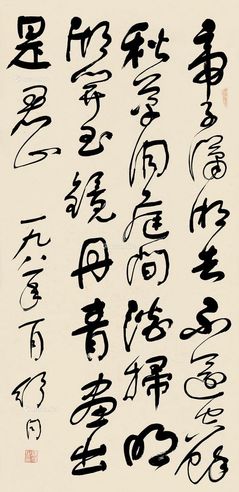 帝子潇湘去不还空馀
秋草洞庭间淡扫明
湖开玉镜丹青画出
是君山
一九八一年一月舒同